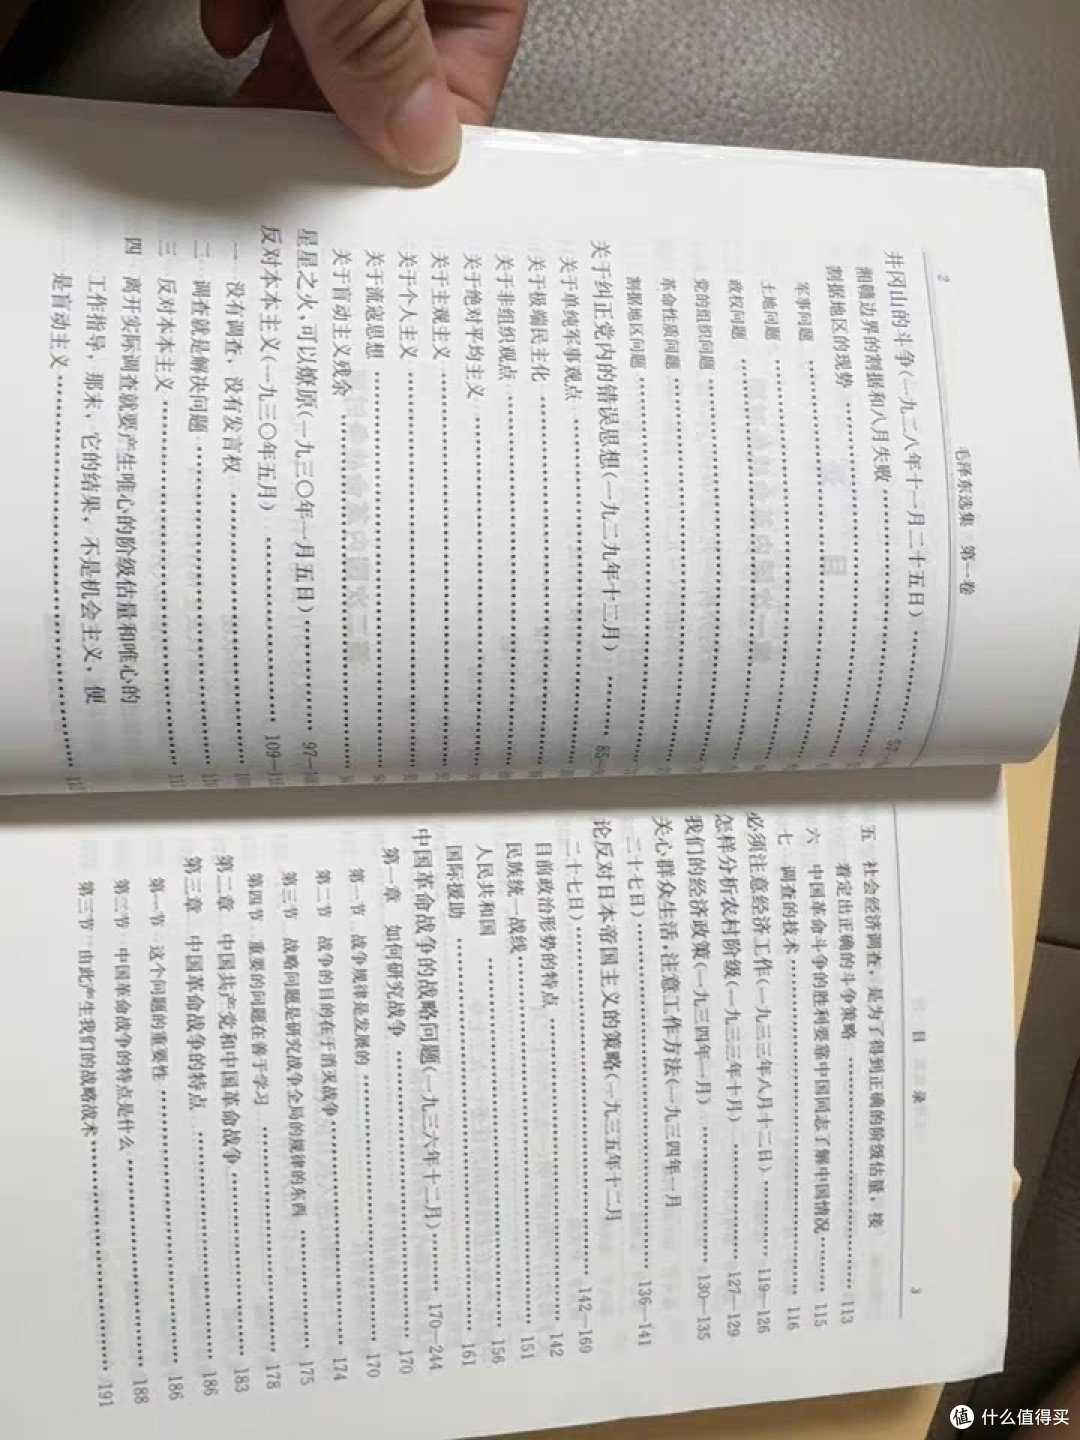 2
毛泽东选集 第一卷
井冈山的斗争(一九二八年十一月二十五日)
湘赣边界的割据和八月失败
割据地区的现势
军事问题
土地问题
政权问题
党的组织问题
革命性质问题
割据地区问题
关于纠正党内的错误思想(一九二九年十二月)
关于单纯军事观点
关于极端民主化
关于非组织观点
关于绝对平均主义
关于主观主义
关于个人主义
关于流寇思想
关于盲动主义残余
星星之火,可以燎原(一九三〇年一月五日)
反对本本主义(一九三〇年五月)
一 没有调查,没有发言权
二 调查就是解决问题
三 反对本本主义
四 离开实际调查就要产生唯心的阶级估量和唯心的
工作指导,那末,它的结果,不是机会主义,便
是盲动主义
目 录
3
五 社会经济调查,是为了得到正确的阶级估量,接
着定出正确的斗争策略 113
六 中国革命斗争的胜利要靠中国同志了解中国情况 115
七 调查的技术 116
必须注意经济工作(一九三三年八月十二日) 119—126
怎样分析农村阶级(一九三三年十月) 127—129
我们的经济政策(一九三四年一月) 130—135
关心群众生活,注意工作方法(一九三四年一月
二十七日) 136—141
论反对日本帝国主义的策略(一九三五年十二月
二十七日) 142—169
目前政治形势的特点 142
民族统一战线 151
人民共和国 156
国际援助 161
中国革命战争的战略问题(一九三六年十二月) 170—244
第一章 如何研究战争 170
第一节 战争规律是发展的 170
第二节 战争的目的在于消灭战争 174
第三节 战略问题是研究战争全局的规律的东西 175
第四节 重要的问题在善于学习 178
第二章 中国共产党和中国革命战争 183
第三章 中国革命战争的特点 186
第一节 这个问题的重要性 186
第二节 中国革命战争的特点是什么 188
第三节 由此产生我们的战略战术 191
值 什么值得买